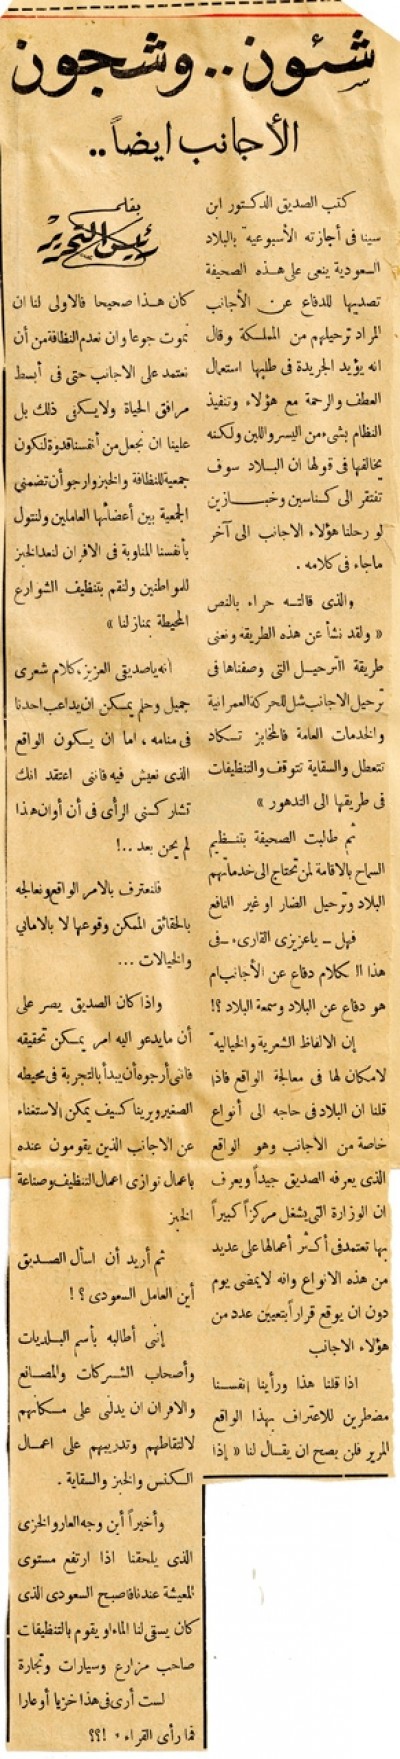 شئون.. وشجون
الأجانب ايضاً..
كتب الصديق الدكتور ابن
سينا فى أجازته الأسبوعية بالبلاد
السعودية ينعى على هذه الصحيفة
تصديها للدفاع عن الأجانب
المراد ترحيلهم من المملكة وقال
انه يؤيد الجريدة فى طلبها استعمال
العطف والرحمة مع هؤلاء وتنفيذ
النظام بشىء من اليسر واللين ولكنه
يخالفها فى قولها ان البلاد سوف
تفتقر الى كناسين وخبازين
لو رحلنا هؤلاء الاجانب الى آخر
ماجاء فى كلامه .
والذى قالته حراء بالنص
« ولقد نشأ عن هذه الطريقه ونعنى
طريقة الترحيل التى وصفناها فى
ترحيل الاجانب شل للحركة العمرانية
والخدمات العامة فالمخابز تكاد
تتعطل والسقاية تتوقف والتنظيفات
فى طريقها الى التدهور »
ثم طالبت الصحيفة بتنظيم
السماح بالاقامة لمن تحتاج الى خدماتهم
البلاد وترحيل الضار او غير النافع
فهل – ياعزيزى القارىء – فى
هذا الكلام دفاع عن الأجانب ام
هو دفاع عن البلاد وسمعة البلاد ؟!
إن الالفاظ الشعرية والخيالية
لامكان لها فى معالجة الواقع فاذا
قلنا ان البلاد فى حاجه الى أنواع
خاصة من الأجانب وهو الواقع
الذى يعرفه الصديق جيداً ويعرف
ان الوزارة التى يشغل مركزاً كبيراً
بها تعتمد فى أكثر أعمالها على عديد
من هذه الانواع وانه لايمضى يوم
دون ان يوقع قراراً بتعيين عدد من
هؤلاء الاجانب
اذا قلنا هذا ورأينا انفسنا
مضطرين للاعتراف بهذا الواقع
المرير فلن يصح ان يقال لنا « إذا
بقلم
رئيس التحرير
كان هذا صحيحا فالاولى لنا ان
نموت جوعا وان نعدم النظافة من أن
نعتمد على الاجانب حتى فى أبسط
مرافق الحياة ولايكفى ذلك بل
علينا ان نجعل من أنفسنا قدوة لنكون
جمعية للنظافة والخبز وارجو أن تضمنى
الجمعية بين أعضائها العاملين ولنتول
بأنفسنا المناوبة فى الافران لنعد الخبز
للمواطنين ولنقم بتنظيف الشوارع
المحيطة بمنازلنا »
انه ياصديقى العزيز، كلام شعرى
جميل وحلم يمكن ان يداعب احدنا
فى منامه ، اما ان يكون الواقع
الذى نعيش فيه فاننى اعتقد انك
تشاركنى الرأى فى أن أوان هذا
لم يحن بعد ..!
فلنعترف بالامر الواقع ونعالجه
بالحقائق الممكن وقوعها لا بالامانى
والخيالات ...
واذا كان الصديق يصر على
أن مايدعو اليه امر يمكن تحقيقه
فاننى أرجوه أن يبدأ بالتجربة فى محيطه
الصغير ويرينا كيف يمكن الاستغناء
عن الاجانب الذين يقومون عنده
باعمال توازى اعمال التنظيف وصناعة
الخبز
ثم أريد أن اسأل الصديق
أين العامل السعودى ؟ !
إننى أطالبه بأسم البلديات
وأصحاب الشركات والمصانع
والافران ان يدلنى على مكانهم
لالتقاطهم وتدريبهم على اعمال
الكنس والخبز والسقاية .
وأخيراً أين وجه العار والخزى
الذى يلحقنا اذا ارتفع مستوى
المعيشة عندنا فاصبح السعودى الذى
كان يسقى لنا الماء او يقوم بالتنظيفات
صاحب مزارع وسيارات وتجارة
لست أرى فى هذا خزيا أو عارا
فما رأى القراء . !؟؟